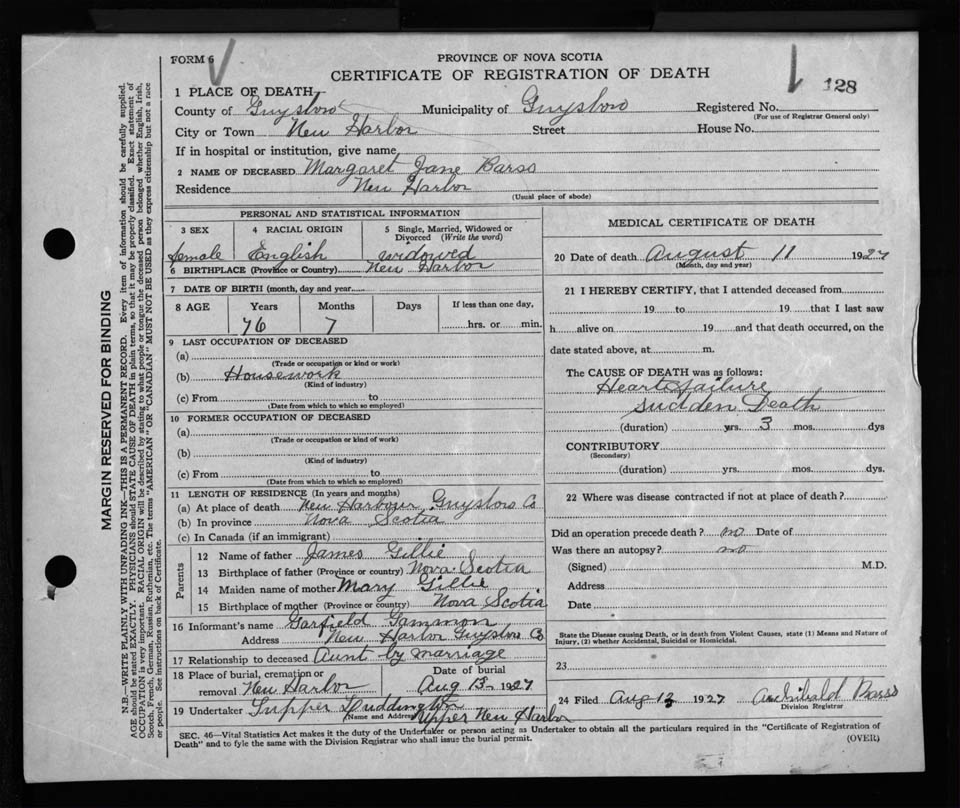 FORM 6
PROVINCE OF NOVA SCOTIA
CERTIFICATE OF REGISTRATION OF DEATH
128
1 PLACE OF DEATH
County of Guysboro Municipality of Guysboro Registered No.
(For use of Registrar General only)
City or Town New Harbor Street House No.
If in hospital or institution, give name
2 NAME OF DECEASED Margaret Jane Barss
Residence New Harbor
(Usual place of abode)
PERSONAL AND STATISTICAL INFORMATION
3 SEX 4 RACIAL ORIGIN 5 Single, Married, Widowed or Divorced (Write the word)
female English widowed
6 BIRTHPLACE (Province or Country) New Harbor
7 DATE OF BIRTH (month, day and year)
8 AGE Years Months Days If less than one day,
76 7 hrs. or min.
9 LAST OCCUPATION OF DECEASED
(a)
(Trade or occupation or kind or work)
(b) Housework
(Kind of industry)
(c) From to
(Date from which to which so employed)
10 FORMER OCCUPATION OF DECEASED
(a)
(Trade or occupation or kind of work)
(b)
(Kind of industry)
(c) From to
(Date from which to which so employed)
11 LENGTH OF RESIDENCE (In years and months)
(a) At place of death New Harbour Guysboro Co
(b) In province Nova Scotia
(c) In Canada (if an immigrant)
Parents
12 Name of father James Gillie
13 Birthplace of father (Province or country) Nova Scotia
14 Maiden name of mother Mary Gillie
15 Birthplace of mother (Province or country) Nova Scotia
16 Informant's name Garfield Gammon
Address New Harbor Guysboro Co
17 Relationship to deceased Aunt by marriage
18 Place of burial, cremation or removal New Harbor
Date of burial Aug 13 1927
19 Undertaker Tupper Luddington
(Name and Address) Upper New Harbor
MEDICAL CERTIFICATE OF DEATH
20 Date of death August 11 1927
(Month, day and year)
21 I HEREBY CERTIFY, that I attended deceased from
19 to 19 that I last saw
h alive on 19 and that death occurred, on the
date stated above, at m.
The CAUSE OF DEATH was as follows:
Heart failure
sudden Death
(duration) yrs. 3 mos. dys
CONTRIBUTORY
(Secondary)
(duration) yrs. mos. dys.
22 Where was disease contracted if not at place of death?
Did an operation precede death? no Date of
Was there an autopsy? no
(Signed) M.D.
Address
Date
State the Disease causing Death, or in death from Violent Causes, state (1) Means and Nature of
Injury, (2) whether Accidental, Suicidal or Homicidal.
23
24 Filed Aug 12 1927 Archibald Barss
Division Registrar
SEC. 46—Vital Statistics Act makes it the duty of the Undertaker or person acting as Undertaker to obtain all the particulars required in the "Certificate of Registration of
Death" and to fyle the same with the Division Registrar who shall issue the burial permit.
(OVER)
MARGIN RESERVED FOR BINDING
N.B.—WRITE PLAINLY WITH UNFADING INK—THIS IS A PERMANENT RECORD. Every item of information should be carefully supplied.
AGE should be stated EXACTLY. PHYSICIANS should STATE CAUSE OF DEATH in plain terms, so that it may be properly classified. Exact statement of
OCCUPATION is very important. RACIAL ORIGIN will be described by stating to what people or tongue the deceased person belonged whether English, Irish,
Scotch, French, German, Russian, Ruthenian, etc. The terms "AMERICAN" OR "CANADIAN" MUST NOT BE USED as they express citizenship but not a race
or people. See instructions on back of Certificate.